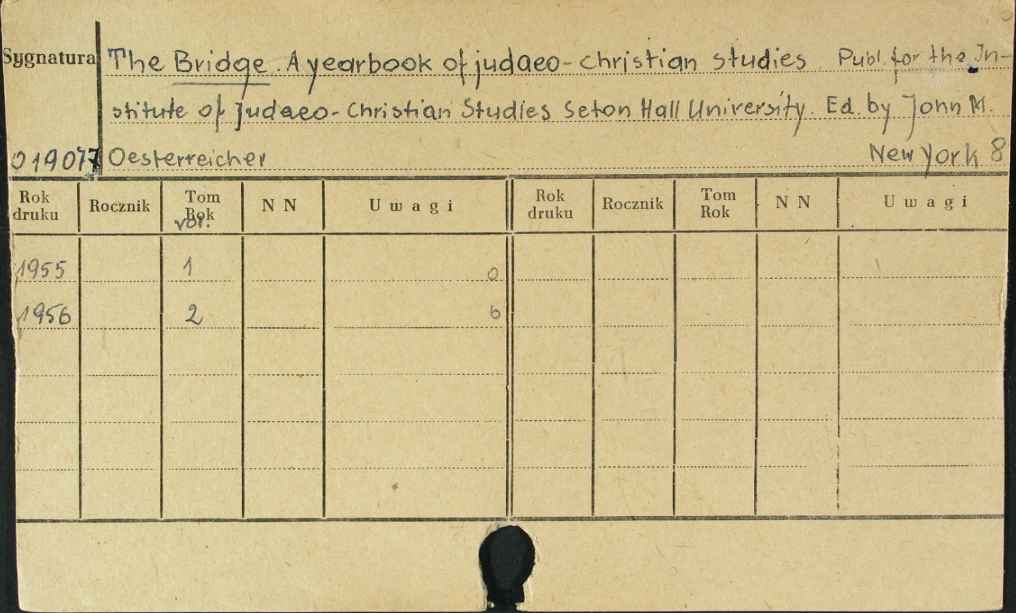 Sygnatura The Bridge. A yearbook of judaeo-christian studies Publ. for the In-
stitute of Judaeo-Christian Studies Seton Hall University. Ed. by John M.
019077 Oesterreicher New York 8
Rok druku Rocznik Tom Rok vol. NN Uwagi Rok druku Rocznik Tom Rok NN Uwagi
1955 1 0
1956 2 6